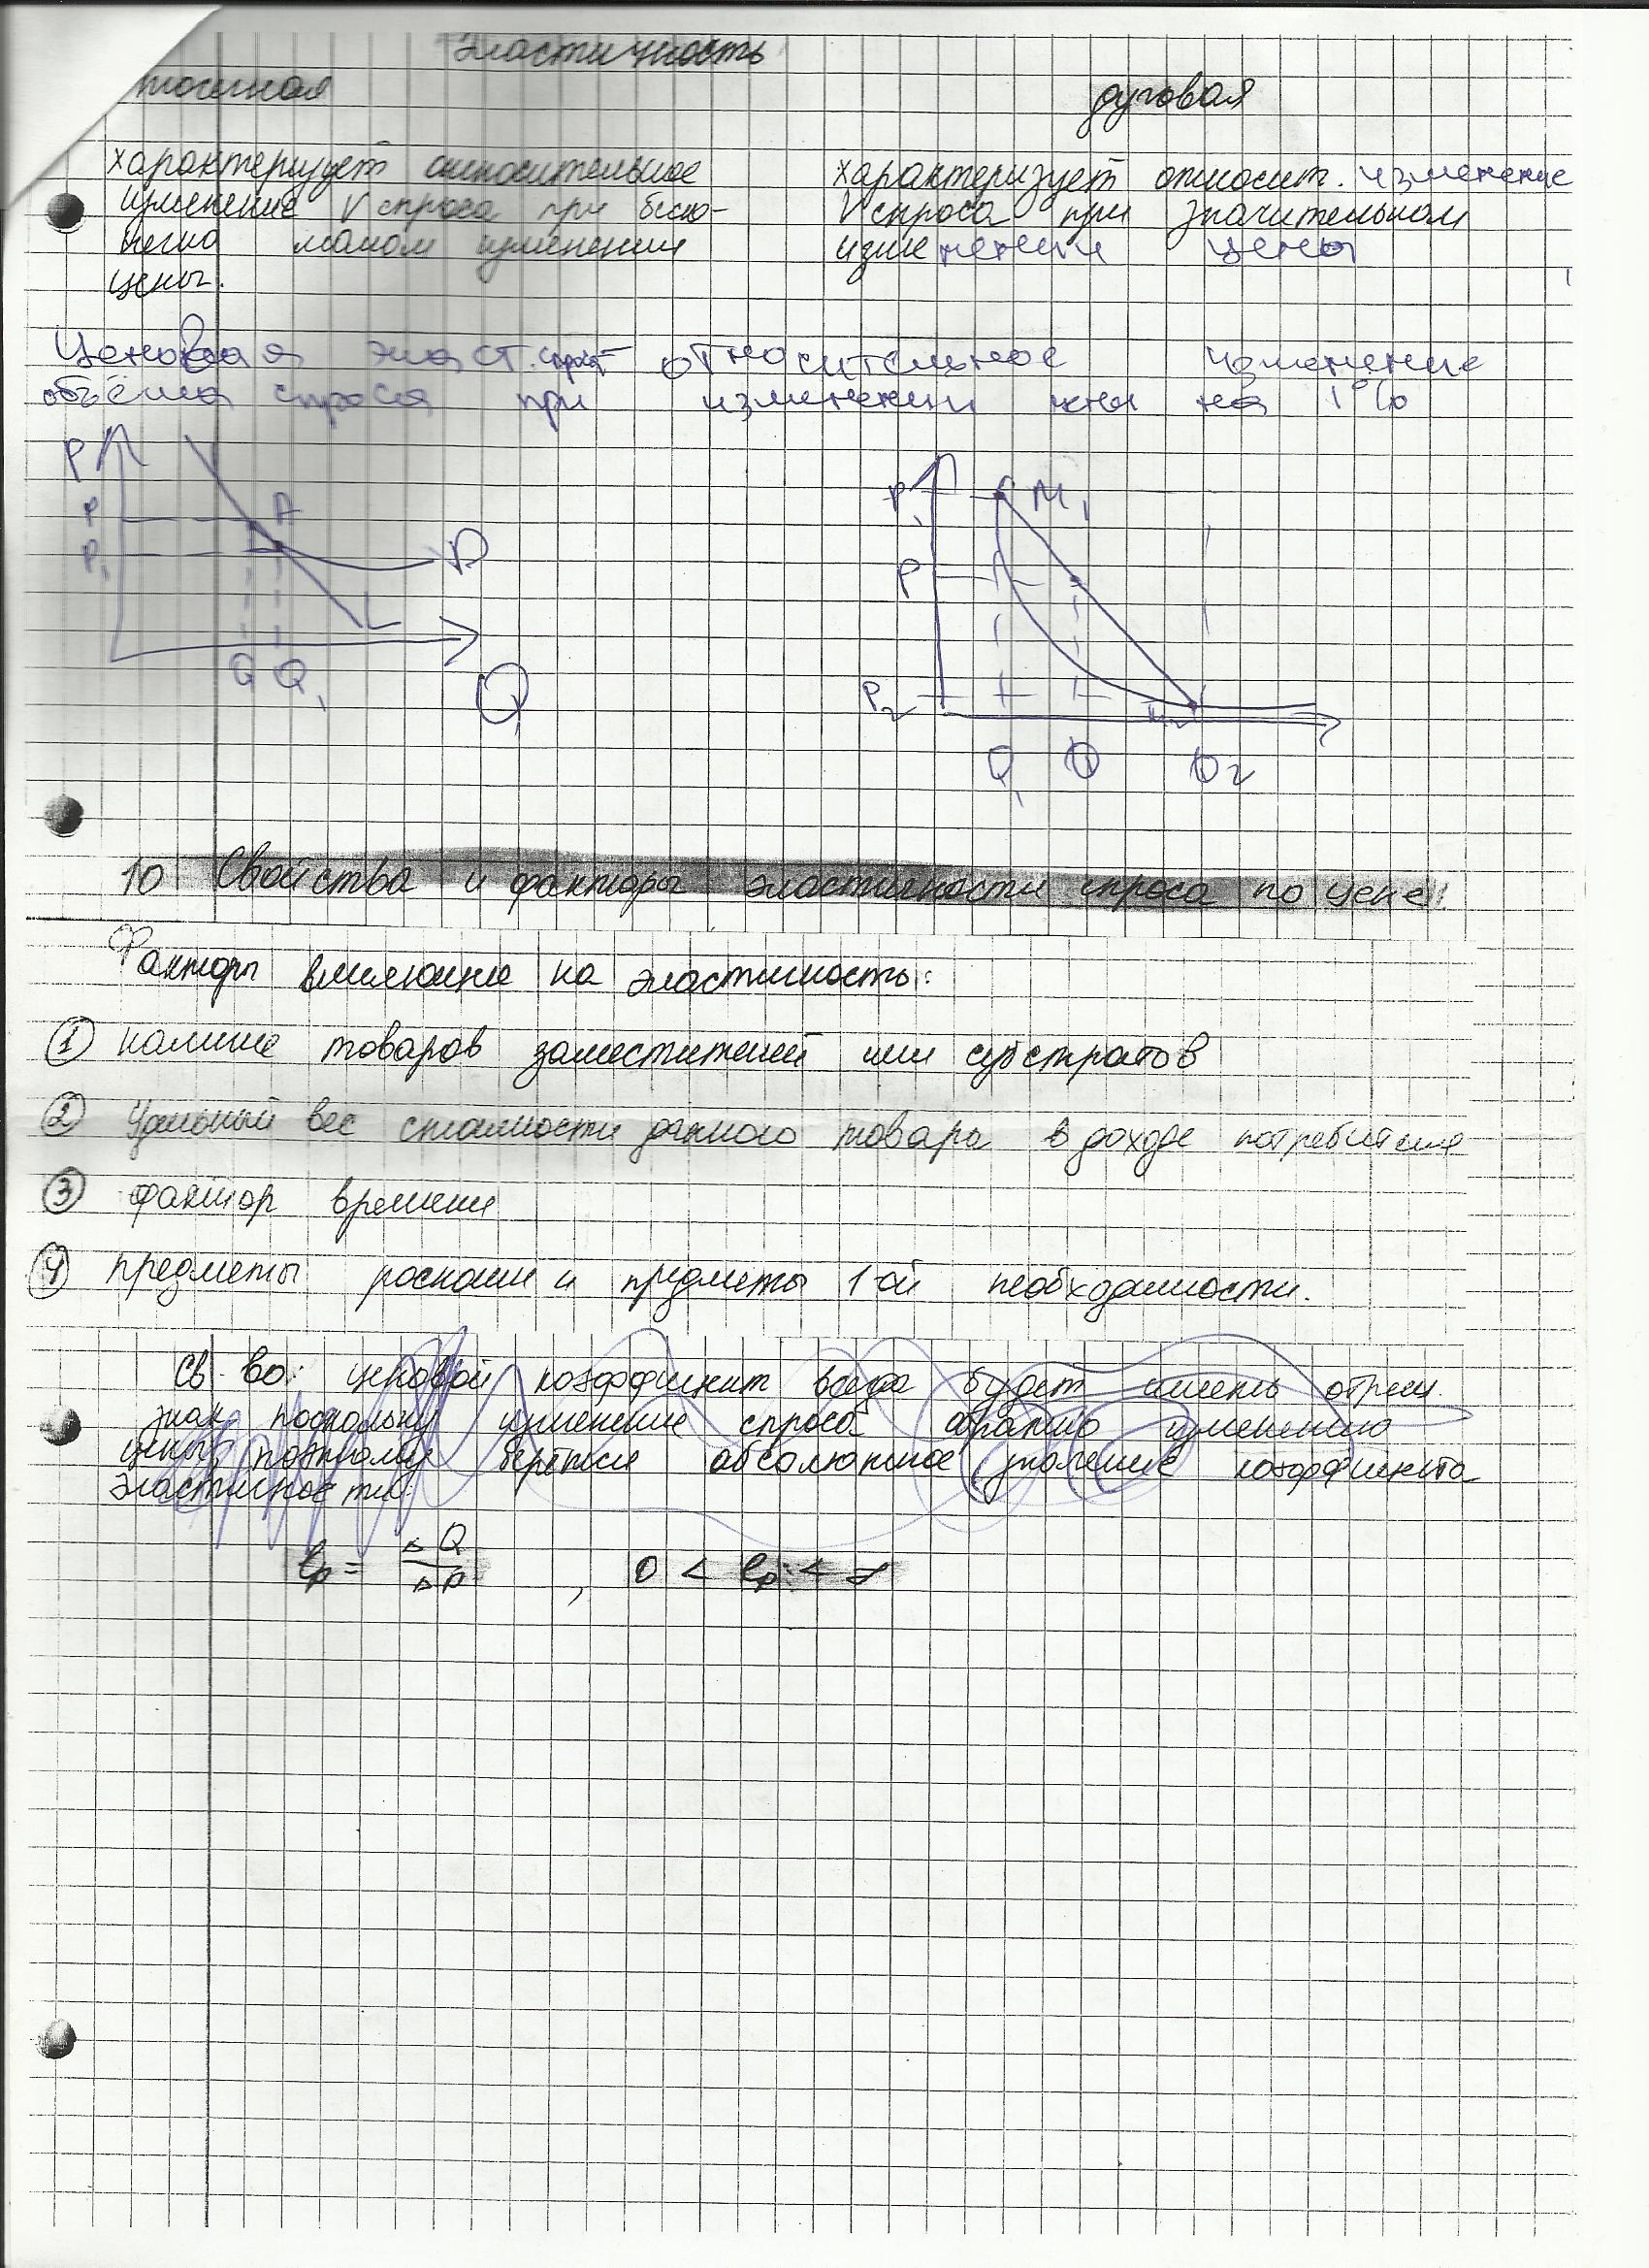 Эластичность
точечная
дуговая
характеризует относительное
изменение V спроса при беско-
нечно малом изменении
цены.
характеризует относит. изменение
V спроса при значительном
изменении цены
Ценовая эласт. спроса – относительное изменение
объёма спроса при изменении цены на 1%
P
P
P₁
A
D
L
Q Q₁
Q
P₁
M₁
P
P₂
M₂
Q₁ Q Q₂
10 Свойства и факторы эластичности спроса по цене.
Факторы влияющие на эластичность:
① наличие товаров заместителей или субстратов
② Удельный вес стоимости данного товара в доходе потребителя
③ фактор времени
④ предметы роскоши и предметы 1-ой необходимости.
Св-во: ценовой коэффициент всегда будет иметь отриц.
знак, поскольку изменение спроса обратно изменению
цены, поэтому берётся абсолютное значение коэффициента
эластичности.
eₚ = ΔQ/ΔP , 0 < eₚ < ∞